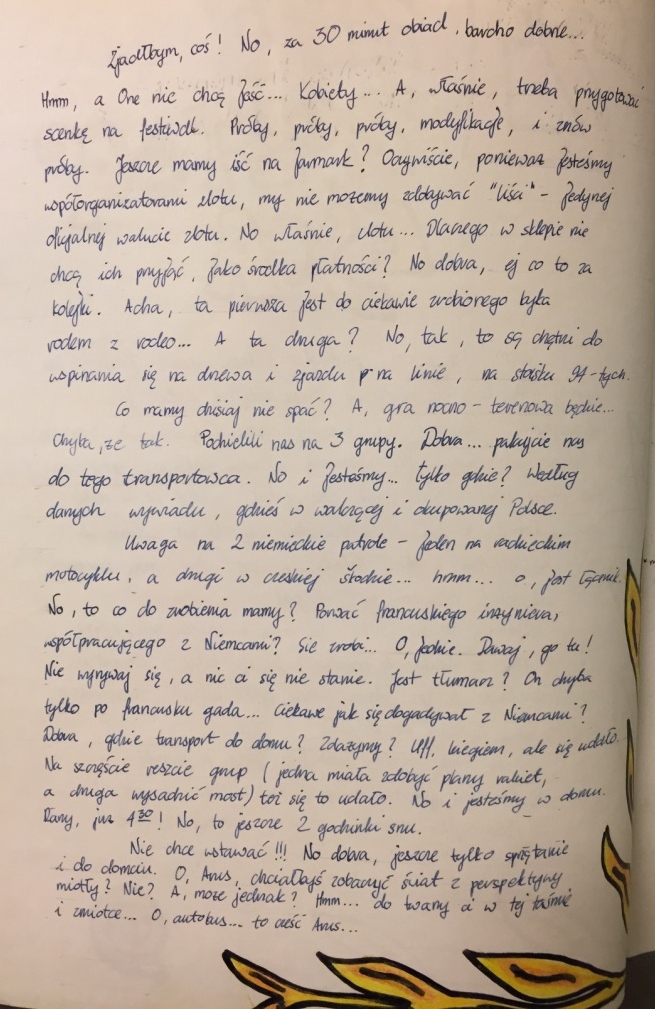 Zjadłbym, coś! No, za 30 minut obiad, bardzo dobrze...
Hmm, a One nie chcą jeść... Kobiety... A, właśnie, trzeba przygotować
scenkę na festiwal. Próby, próby, próby, modyfikacje, i znów
próby. Jeszcze mamy iść na Jarmark? Oczywiście, ponieważ jesteśmy
współorganizatorami zlotu, my nie możemy zdobywać "liści" - jedynej
oficjalnej walucie zlotu. No właśnie, zlotu... Dlaczego w sklepie nie
chcą ich przyjąć, jako środka płatności? No dobra, ej co to za
kolejki. Acha, ta pierwsza jest do ciekawie zrobionego byka
rodem z rodeo... A ta druga? No, tak, to są chętni do
wspinania się na drzewa i zjazdu na linie, na stoisku 94-tych.
Co mamy dzisiaj nie spać? A, gra nocno - terenowa będzie...
Chyba, że tak. Podzielili nas na 3 grupy. Dobra... pakujcie nas
do tego transportowca. No i jesteśmy... tylko gdzie? Według
danych wywiadu, gdzieś w walczącej i okupowanej Polsce.
Uwaga na 2 niemieckie patrole - jeden na radzieckim
motocyklu, a drugi w czeskiej Skodzie... hmm... o, jest łącznik.
No, to co do zrobienia mamy? Porwać francuskiego inżyniera,
współpracującego z Niemcami? Się zrobi... O, jedzie. Dawaj, go tu!
Nie wyrywaj się, a nic ci się nie stanie. Jest tłumacz? On chyba
tylko po francusku gada... Ciekawe jak się dogadywał z Niemcami?
Dobra, gdzie transport do domu? Zdążymy? Uff, biegiem, ale się udało.
Na szczęście reszcie grup (jedna miała zdobyć plany rakiet,
a druga wysadzić most) też się to udało. No i jesteśmy w domu.
Rany, już 4³⁰! No, to jeszcze 2 godzinki snu.
Nie chcę wstawać!!! No dobra, jeszcze tylko sprzątanie
i do domciu. O, Arus, chciałbyś zobaczyć świat z perspektywy
miotły? Nie? A, może jednak? Hmm... do twarzy ci w tej taśmie
i zmiotce... O, autobus... to cześć Arus...